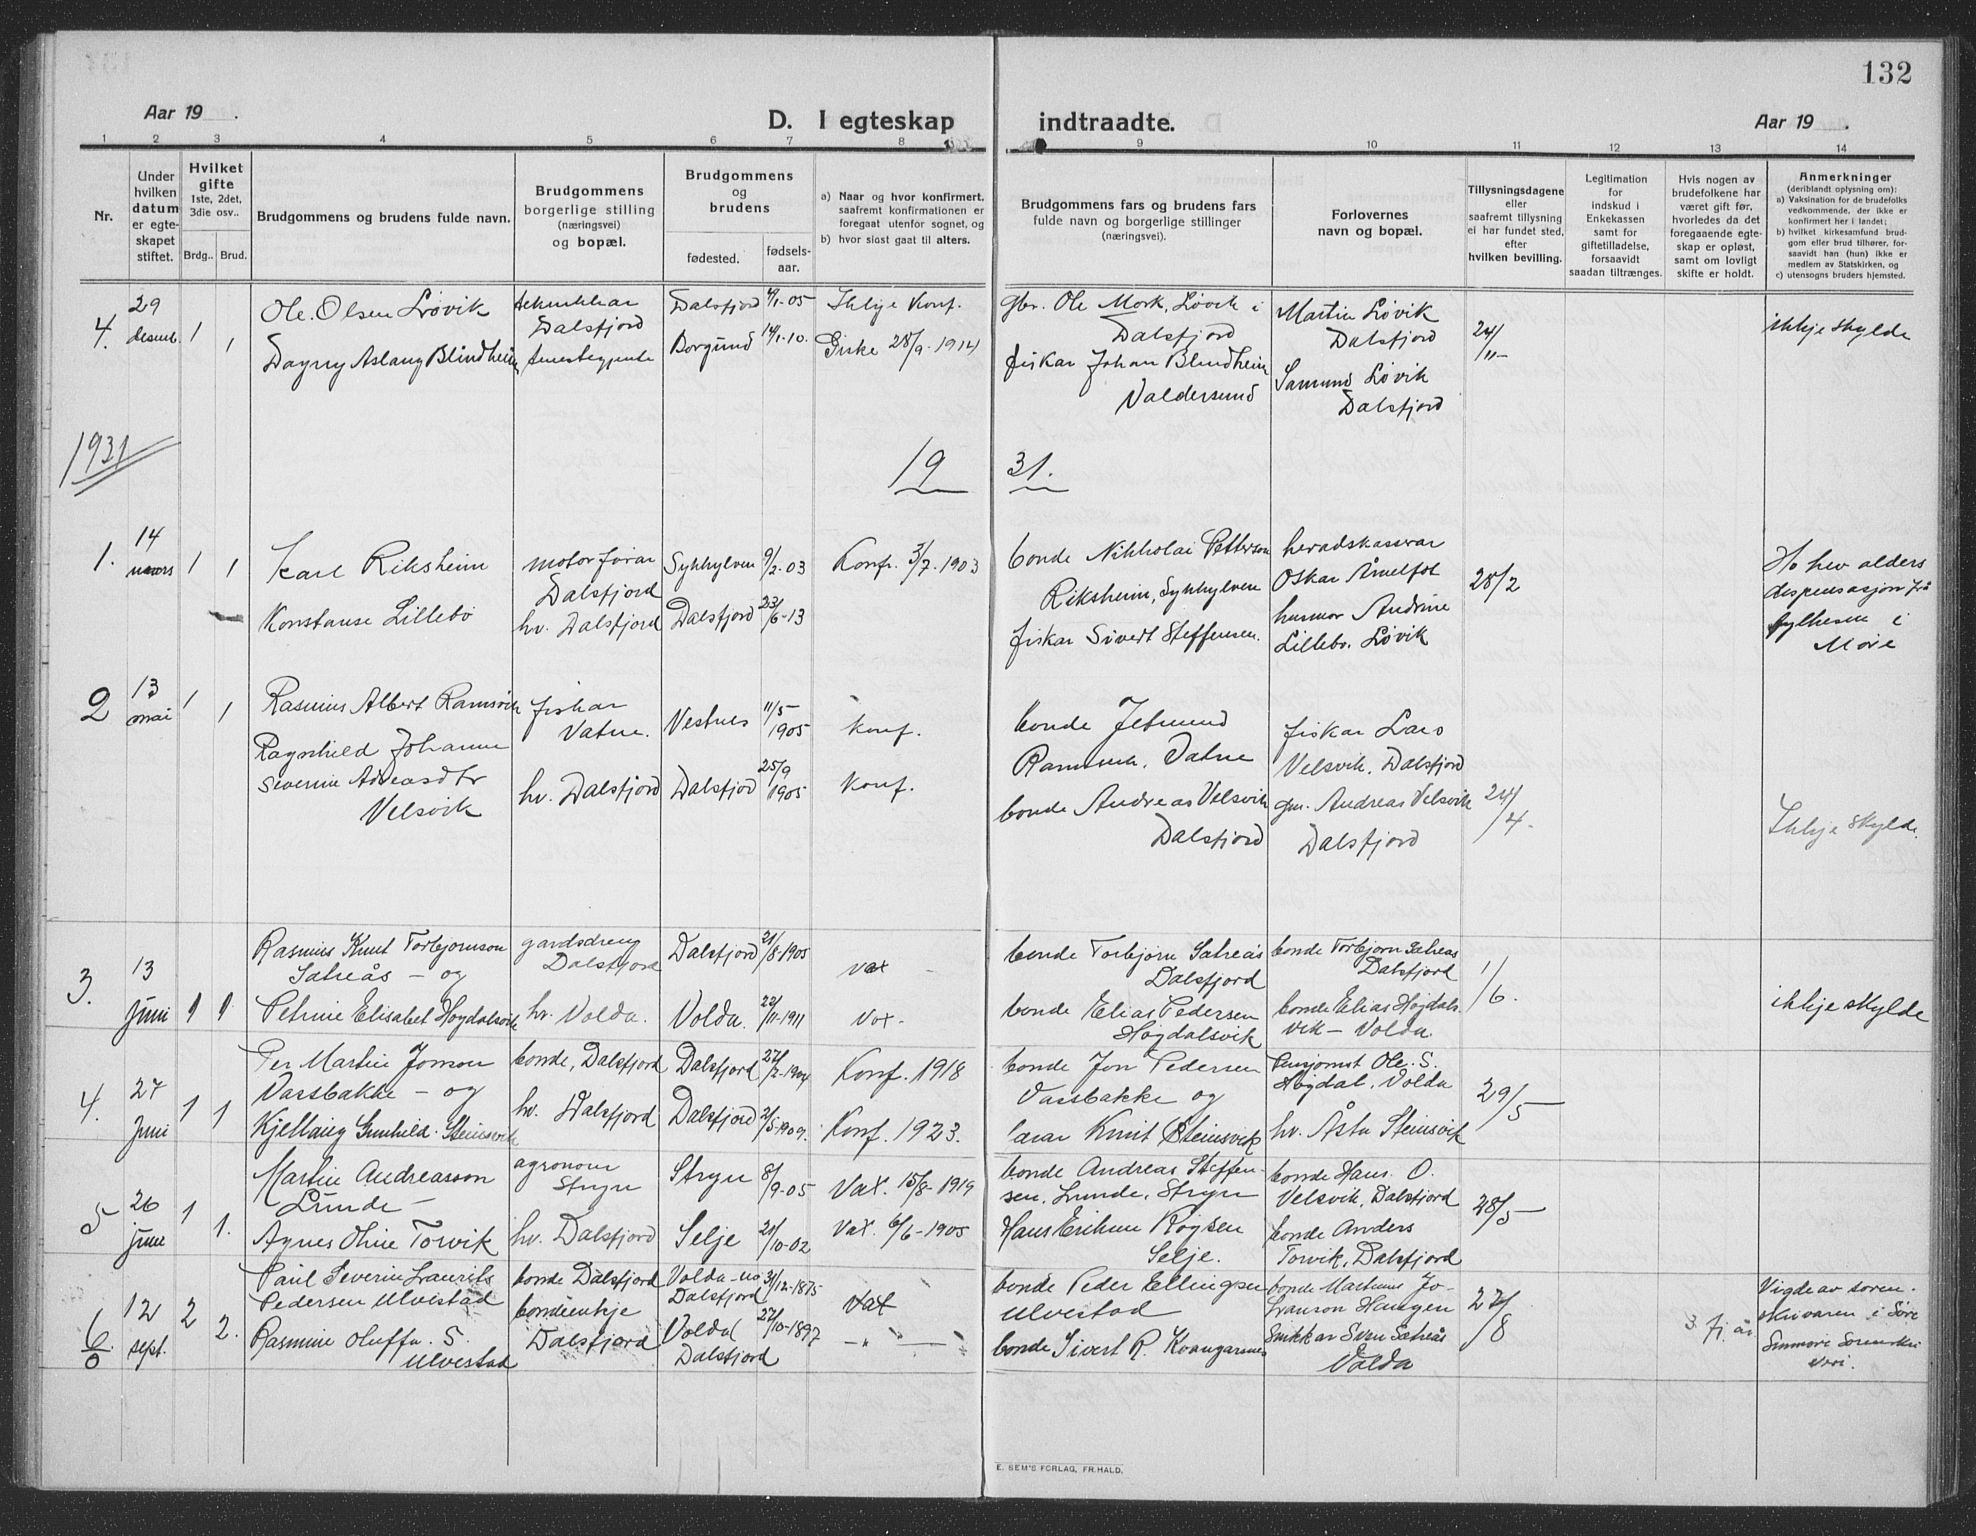 132
Aar 19 .
D. I egteskap indtraadte.
Aar 19 .
1 2 3 4 5 6 7 8 9 10 11 12 13 14
Nr.
Under
hvilken
datum
er egte-
skapet
stiftet.
Hvilket
gifte
1ste, 2det,
3die osv..
Brdg.. Brud.
Brudgommens og brudens fulde navn.
Brudgommens
borgerlige stilling
(næringsvei)
og bopæl.
Brudgommens
og
brudens
fødested.
fødsels-
aar.
a) Naar og hvor konfirmert,
saafremt konfirmationen er
foregaat utenfor sognet, og
b) hvor sisst gaat til alters.
Brudgommens fars og brudens fars
fulde navn og borgerlige stillinger
(næringsvei).
Forlovernes
navn og bopæl.
Tillysningsdagene
eller
saafremt tillysning
ei har fundet sted,
efter
hvilken bevilling.
Legitimation
for
indskud i
Enkekassen
samt for
giftetilladelse,
forsaavidt
saadan tiltrænges.
Hvis nogen av
brudefolkene har
været gift før,
hvorledes da det
foregaaende egte-
skap er opløst,
samt om lovligt
skifte er holdt.
Anmerkninger
(deriblandt oplysning om):
a) Vaksination for de brudefolks
vedkommende, der ikke er
konfirmert her i landet;
b) hvilket kirkesamfund brud-
gom eller brud tilhører, for-
saavidt han (hun) ikke er
medlem av Statskirken, og
c) utensogns bruders hjemsted.
4. 29 desemb. 1 1
Ole. Olsen Løvik
Dagny Aslaug Blindheim
Dalsfjord
Dalsfjord 4/1-05
Borgund 14/1-10.
Ikkje Konf.
Giske 28/9-1914
gbr. Ole Mork, Løvik i
Dalsfjord
fiskar Johan Blindheim
Valdersund
Martin Løvik
Dalsfjord
Samund Løvik
Dalsfjord
24/11-
ikkje skylde
1931
19 31.
1. 14 mars 1 1
Karl Riksheim
Konstanse Lillebø
motorførar
Dalsfjord
hv. Dalsfjord
Sykkylven 9/2-03
Dalsfjord 23/6-13
Konfr. 3/7-1903
bonde Nikkolai Petterson
Riksheim, Sykkylven
fiskar Sivert Steffensen.
heradskasserar
Oskar Åmelfot
husmor Andrine
Lillebø. Løvik
28/2
Ho hev alders
dispensasjon frå
fylkesm i
Møre
2 13 mai 1 1
Rasmus Albert Ramsvik
Ragnhild Johanne
Severine Andreasdtr
Velsvik
fiskar
Vatne.
hv. Dalsfjord
Vestnes 11/5 1905
Dalsfjord 25/9 1905
Konf.
Konf.
bonde Jetmund
Ramsvik, Vatne
bonde Andreas Velsvik
Dalsfjord
fiskar Lars
Velsvik, Dalsfjord
gm. Andreas Velsvik
Dalsfjord
24/4-
Ikkje skylde
3. 13 juni 1 1
Rasmus Knut Torbjørnson
Sætreås - og
Petrine Elisabet Høgdalsvik
gardsdreng
Dalsfjord
hv. Volda.
Dalsfjord 21/8-1905
Volda. 22/11-1911
vax -
Vax -
bonde Torbjørn Sætreås
Dalsfjord
bonde Elias Pedersen
Høgdalsvik
bonde Torbjørn Sætreås
Dalsfjord
bonde Elias Høgdals-
vik - Volda
1/6.
ikkje skylde
4. 27 juni 1 1
Per Martin Jonson
Vassbakke - og
Kjellaug Gunhild. Steinsvik
bonde, Dalsfjord
hv. Dalsfjord
Dalsfjord 27/2-1904
Dalsfjord 2/5-1909.
Konf. 1918
Konf. 1923.
bonde Jon Pedersen
Vassbakke og
lærar Knut Steinsvik
Pensjonist Ole. S.
Høgdal, Volda
hv. Åsta Steinsvik
29/5
5 26 june 1 1.
Martin Andreasson
Lunde -
Agnes Oline Torvik
agronom
Stryn
hv. Dalsfjord
Stryn 8/9-05
Selje 21/10-02
Vax. 15/8-1919
Vax. 6/6-1905
bonde Andreas Steffen-
sen. Lunde, Stryn
Hans Eriksen Røysen
Selje.
bonde Hans O.
Velsvik, Dalsfjord
bonde Anders
Torvik, Dalsfjord
28/5
6/0 12 sept. 2 2.
Paul Severin Laurits
Pedersen Ulvestad
Rasmine Oluffa. S.
Ulvestad
bonde Dalsfjord
bondeenkje
Dalsfjord
Volda-no
Dalsfjord 31/12-1875
Volda(
Dalsfjord 27/10-1897
Vax
- " -
bonde Peder Ellingsen
Ulvestad
bonde Sivert R. Kvangarsnes
bonde Mathias Jo-
hanson Haugen
Snikkar Sven Sætreås
Volda
27/8
Vigde av soren-
skrivaren i Søre
Sunmøre Sorenskri
veri.
E. SEM'S FORLAG, FR.HALD.